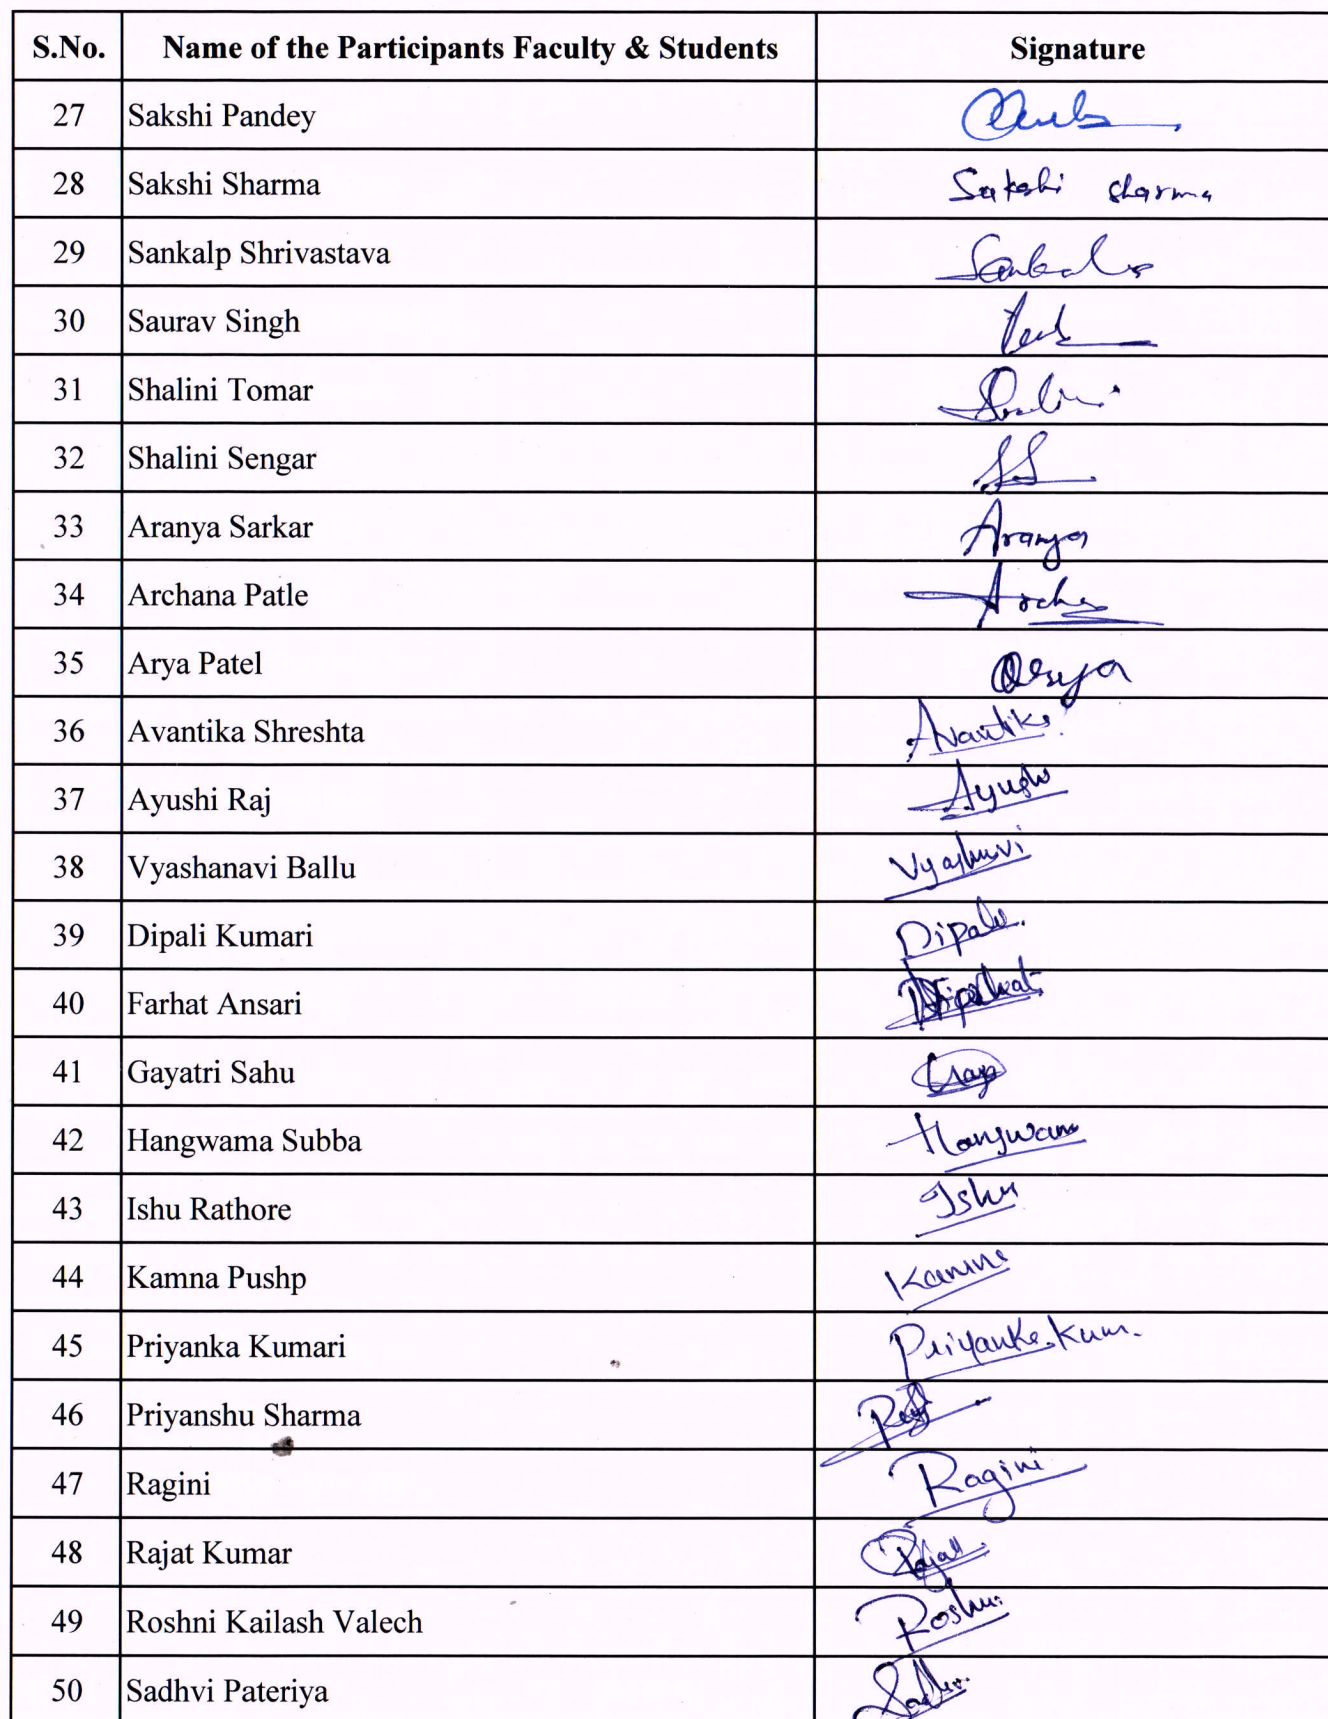 S.No. Name of the Participants Faculty & Students Signature
27 Sakshi Pandey
28 Sakshi Sharma Sakshi Sharma
29 Sankalp Shrivastava
30 Saurav Singh
31 Shalini Tomar Shalini
32 Shalini Sengar SS
33 Aranya Sarkar Aranya
34 Archana Patle
35 Arya Patel Arya
36 Avantika Shreshta Avantika
37 Ayushi Raj Ayushi
38 Vyashanavi Ballu
39 Dipali Kumari Dipali
40 Farhat Ansari
41 Gayatri Sahu
42 Hangwama Subba Hangwama
43 Ishu Rathore Ishu
44 Kamna Pushp
45 Priyanka Kumari Priyanka Kum.
46 Priyanshu Sharma
47 Ragini Ragini
48 Rajat Kumar Rajat
49 Roshni Kailash Valech Roshni
50 Sadhvi Pateriya